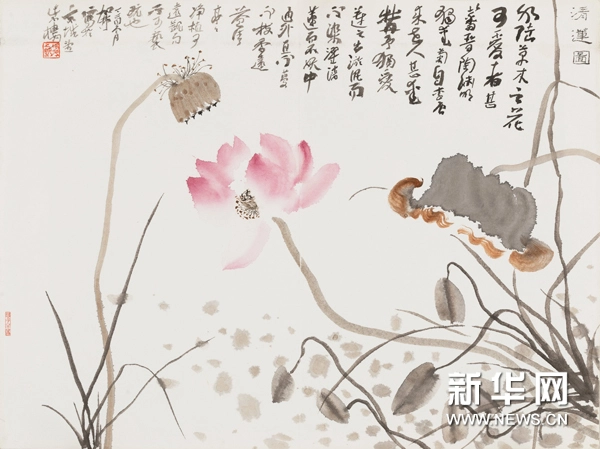 清蓮圖
水陸草木之花
可愛者甚
蕃晉陶淵明
獨愛菊自李唐
來世人甚愛
牡丹予獨愛
蓮之出淤泥而
不染濯清
蓮而不妖中
通外直不蔓
不枝香遠
益清
亭亭
淨植可
遠觀而
不可褻
玩也
丁酉六月
新华网
WWW.NEWS.CN